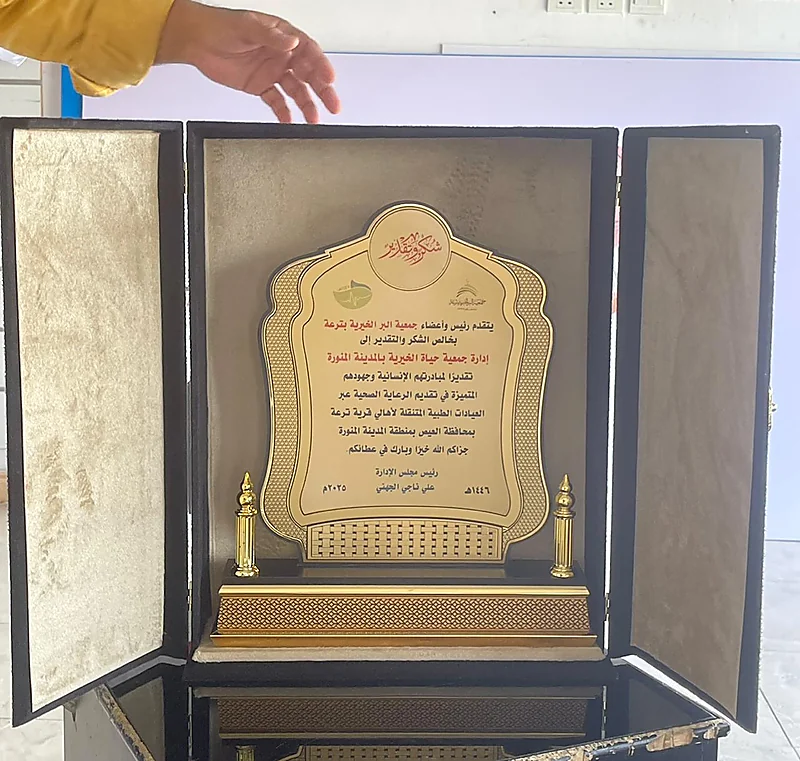 شكر وتقدير
يتقدم رئيس وأعضاء جمعية البر الخيرية بترعة
بخالص الشكر والتقدير إلى
إدارة جمعية حياة الخيرية بالمدينة المنورة
تقديرًا لمبادرتهم الإنسانية وجهودهم
المتميزة في تقديم الرعاية الصحية عبر
العيادات الطبية المتنقلة لأهالي قرية ترعة
بمحافظة العيص بمنطقة المدينة المنورة
جزاكم الله خيرًا وبارك في عطائكم.
رئيس مجلس الإدارة
١٤٤٦هـ علي ناجي الجهني ٢٠٢٥م